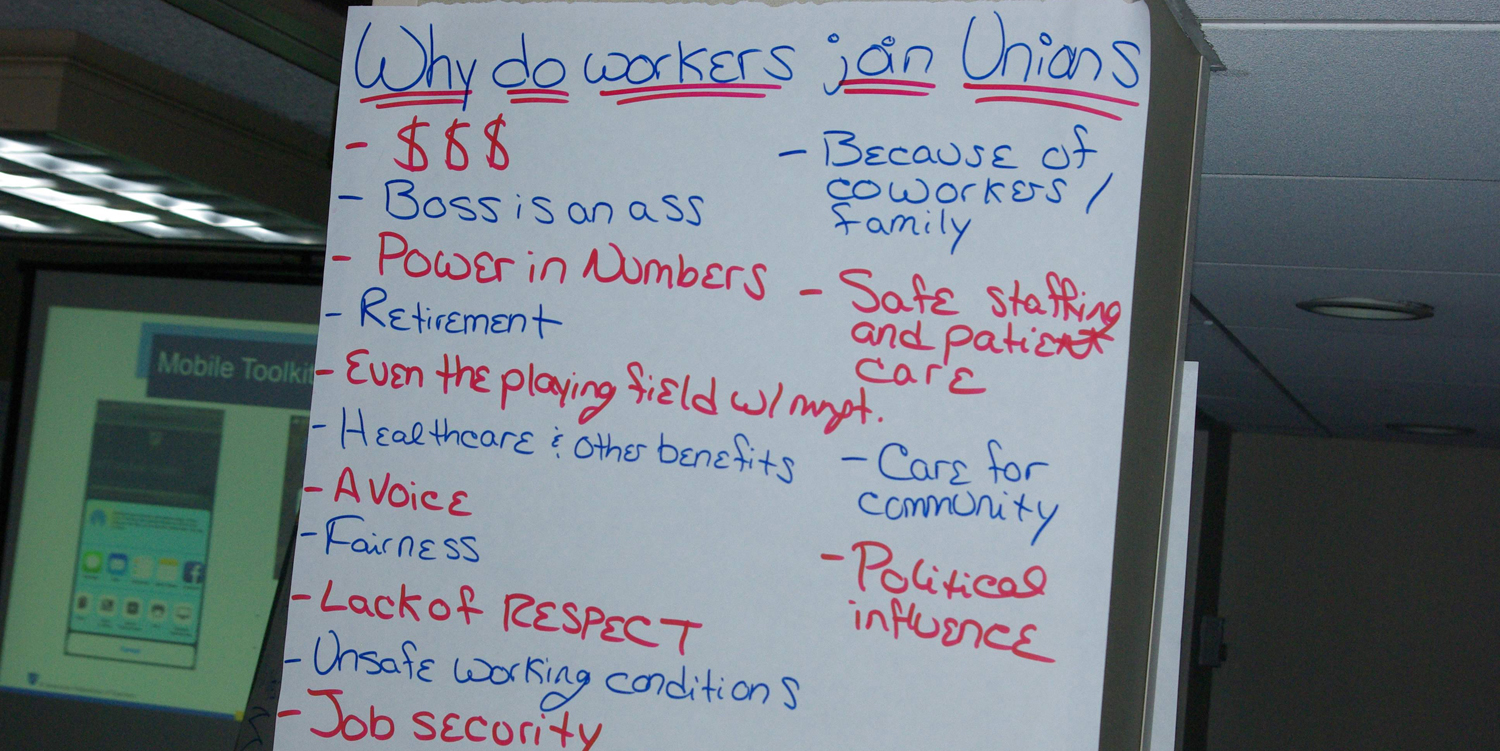 Why do workers join Unions
- $$$
- Boss is an ass
- Power in Numbers
- Retirement
- Even the playing field w/ mgt.
- Healthcare & other benefits
- A Voice
- Fairness
- Lack of RESPECT
- Unsafe working conditions
- Job security
- Because of
coworkers /
family
- Safe staffing
and patient
care
- Care for
community
- Political
influence
Mobile Toolkit